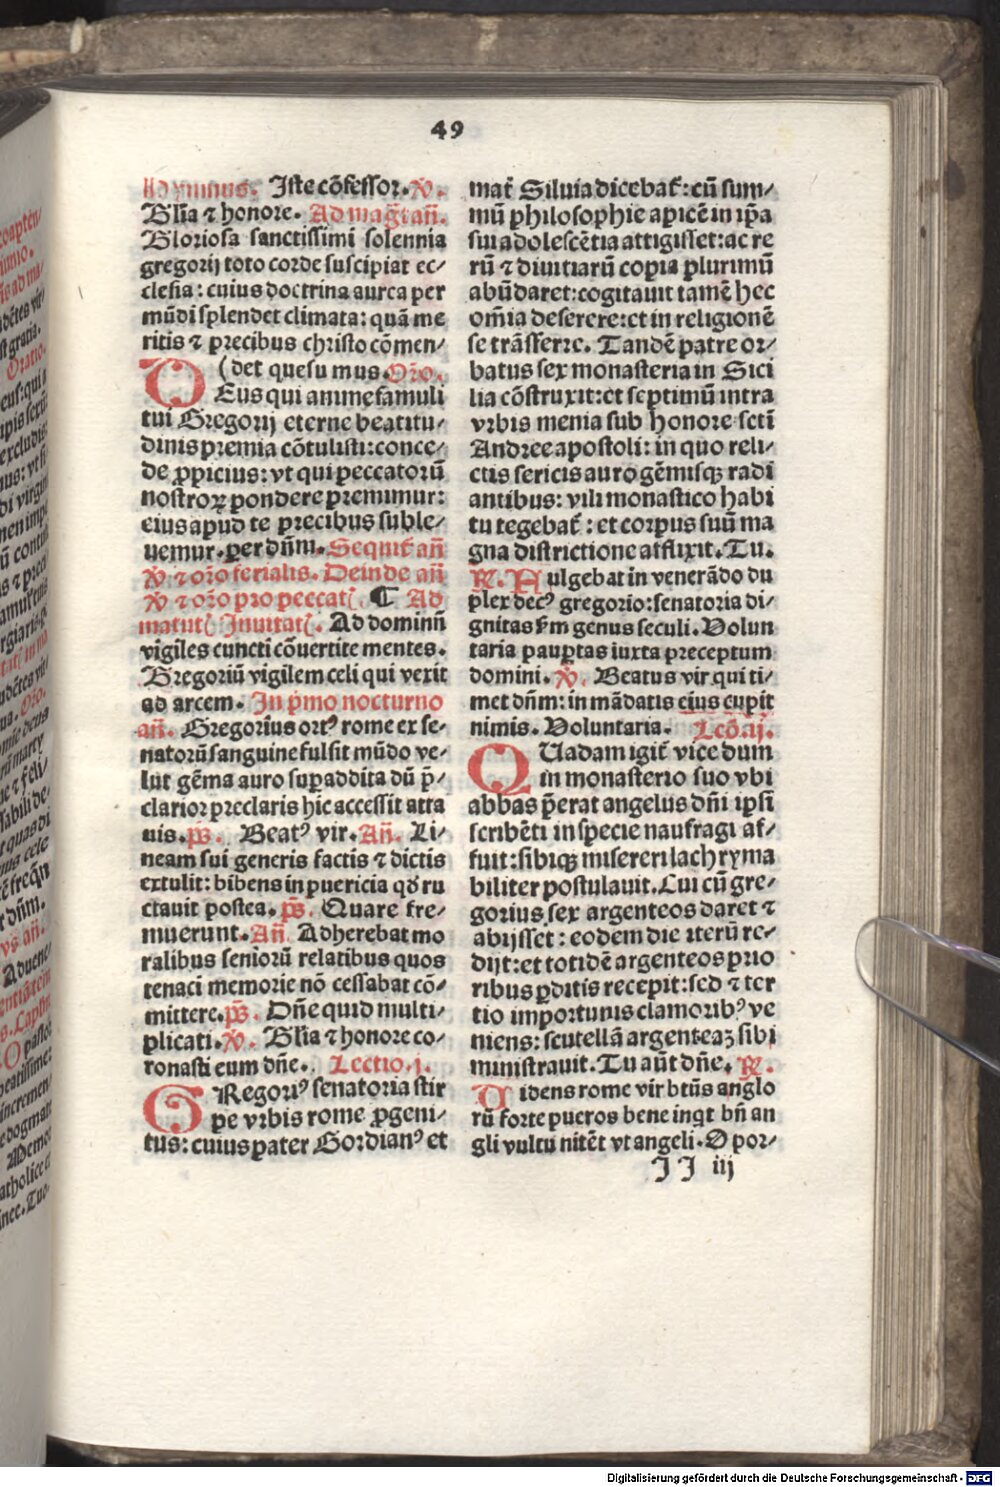 49
Hymnus. Iste cõfessor. ℣.
Glĩa ⁊ honore. Ad mag̃t añ.
Gloriosa sanctissimi solennia
gregorij toto corde suscipiat ec⸗
clesia: cuius doctrina aurea per
mũdi splendet climata: quã me
ritis ⁊ precibus christo cõmen⸗
(det quesumus. Or̃o.
DEus qui anime famuli
tui Gregorij eterne beatitu⸗
dinis premia cõtulisti: conce⸗
de ꝓpicius: vt qui peccatorũ
nostroꝝ pondere premimur:
eius apud te precibus suble⸗
uemur. ꝑer dñm. Sequit᷑ añ
℣ ⁊ or̃o ferialis. Deinde añ
℣ ⁊ or̃o pro peccat. ¶ Ad
matut Inuitat. Ad dominũ
vigiles cuncti cõuertite mentes.
Gregoriũ vigilem celi qui vexit
ad arcem. In p̃mo nocturno
añ. Gregorius ortꝰ rome ex se⸗
natorũ sanguine fulsit mũdo ve⸗
lut gẽma auro suꝑaddita dũ p̃⸗
clarior preclaris hic accessit atta
uis. p̃s. Beatꝰ vir. Añ. Li⸗
neam sui generis factis ⁊ dictis
extulit: bibens in puericia qđ ru
ctauit postea. p̃s. Quare fre⸗
muerunt. Añ Adherebat mo
ralibus seniorũ relatibus quos
tenaci memorie nõ cessabat cõ⸗
mittere. p̃s. Dñe quid multi⸗
plicati. ℣. Glĩa ⁊ honore co⸗
ronasti eum dñe. Lectio. j.
GRegoriꝰ senatoria stir
pe vrbis rome ꝓgeni⸗
tus: cuius pater Gordianꝰ et
mat᷑ Siluia dicebat᷑: cũ sum⸗
mũ philosophie apicẽ in ip̃a
sui adolescẽtia attigisset: ac re
rũ ⁊ diuitiarũ copia plurimũ
abũdaret: cogitauit tamẽ hec
om̃ia deserere: et in religionẽ
se trãsferre. Tandẽ patre or⸗
batus sex monasteria in Sici
lia cõstruxit: et septimũ intra
vrbis menia sub honore scti
Andree apostoli: in quo reli⸗
ctis sericis auro gẽmisqꝫ radi
antibus: vili monastico habi
tu tegebat᷑: et corpus suũ ma
gna districtione afflixit. Tu.
℟. Fulgebat in venerãdo du
plex decꝰ gregorio: senatoria di⸗
gnitas ẜm genus seculi. Volun
taria pauꝑtas iuxta preceptum
domini. ℣. Beatus vir qui ti⸗
met dñm: in mãdatis eius cupit
nimis. Voluntaria. Lcõ. ij.
QUadam igit᷑ vice dum
in monasterio suo vbi
abbas p̃erat angelus dñi ipsi
scribẽti in specie naufragi af⸗
fuit: sibiqꝫ misereri lachryma
biliter postulauit. Cui cũ gre⸗
gorius sex argenteos daret ⁊
abijsset: eodem die iterũ re⸗
dijt: et totidẽ argenteos prio
ribus ꝑditis recepit: sed ⁊ ter
tio importunis clamoribꝰ ve
niens: scutellã argenteaꝫ sibi
ministrauit. Tu aũt dñe. ℟.
Uidens rome vir btũs anglo
rũ forte pueros bene inqt bñ an
gli vultu nitẽt vt angeli. O por⸗
JJ iij
Digitalisierung gefördert durch die Deutsche Forschungsgemeinschaft - DFG